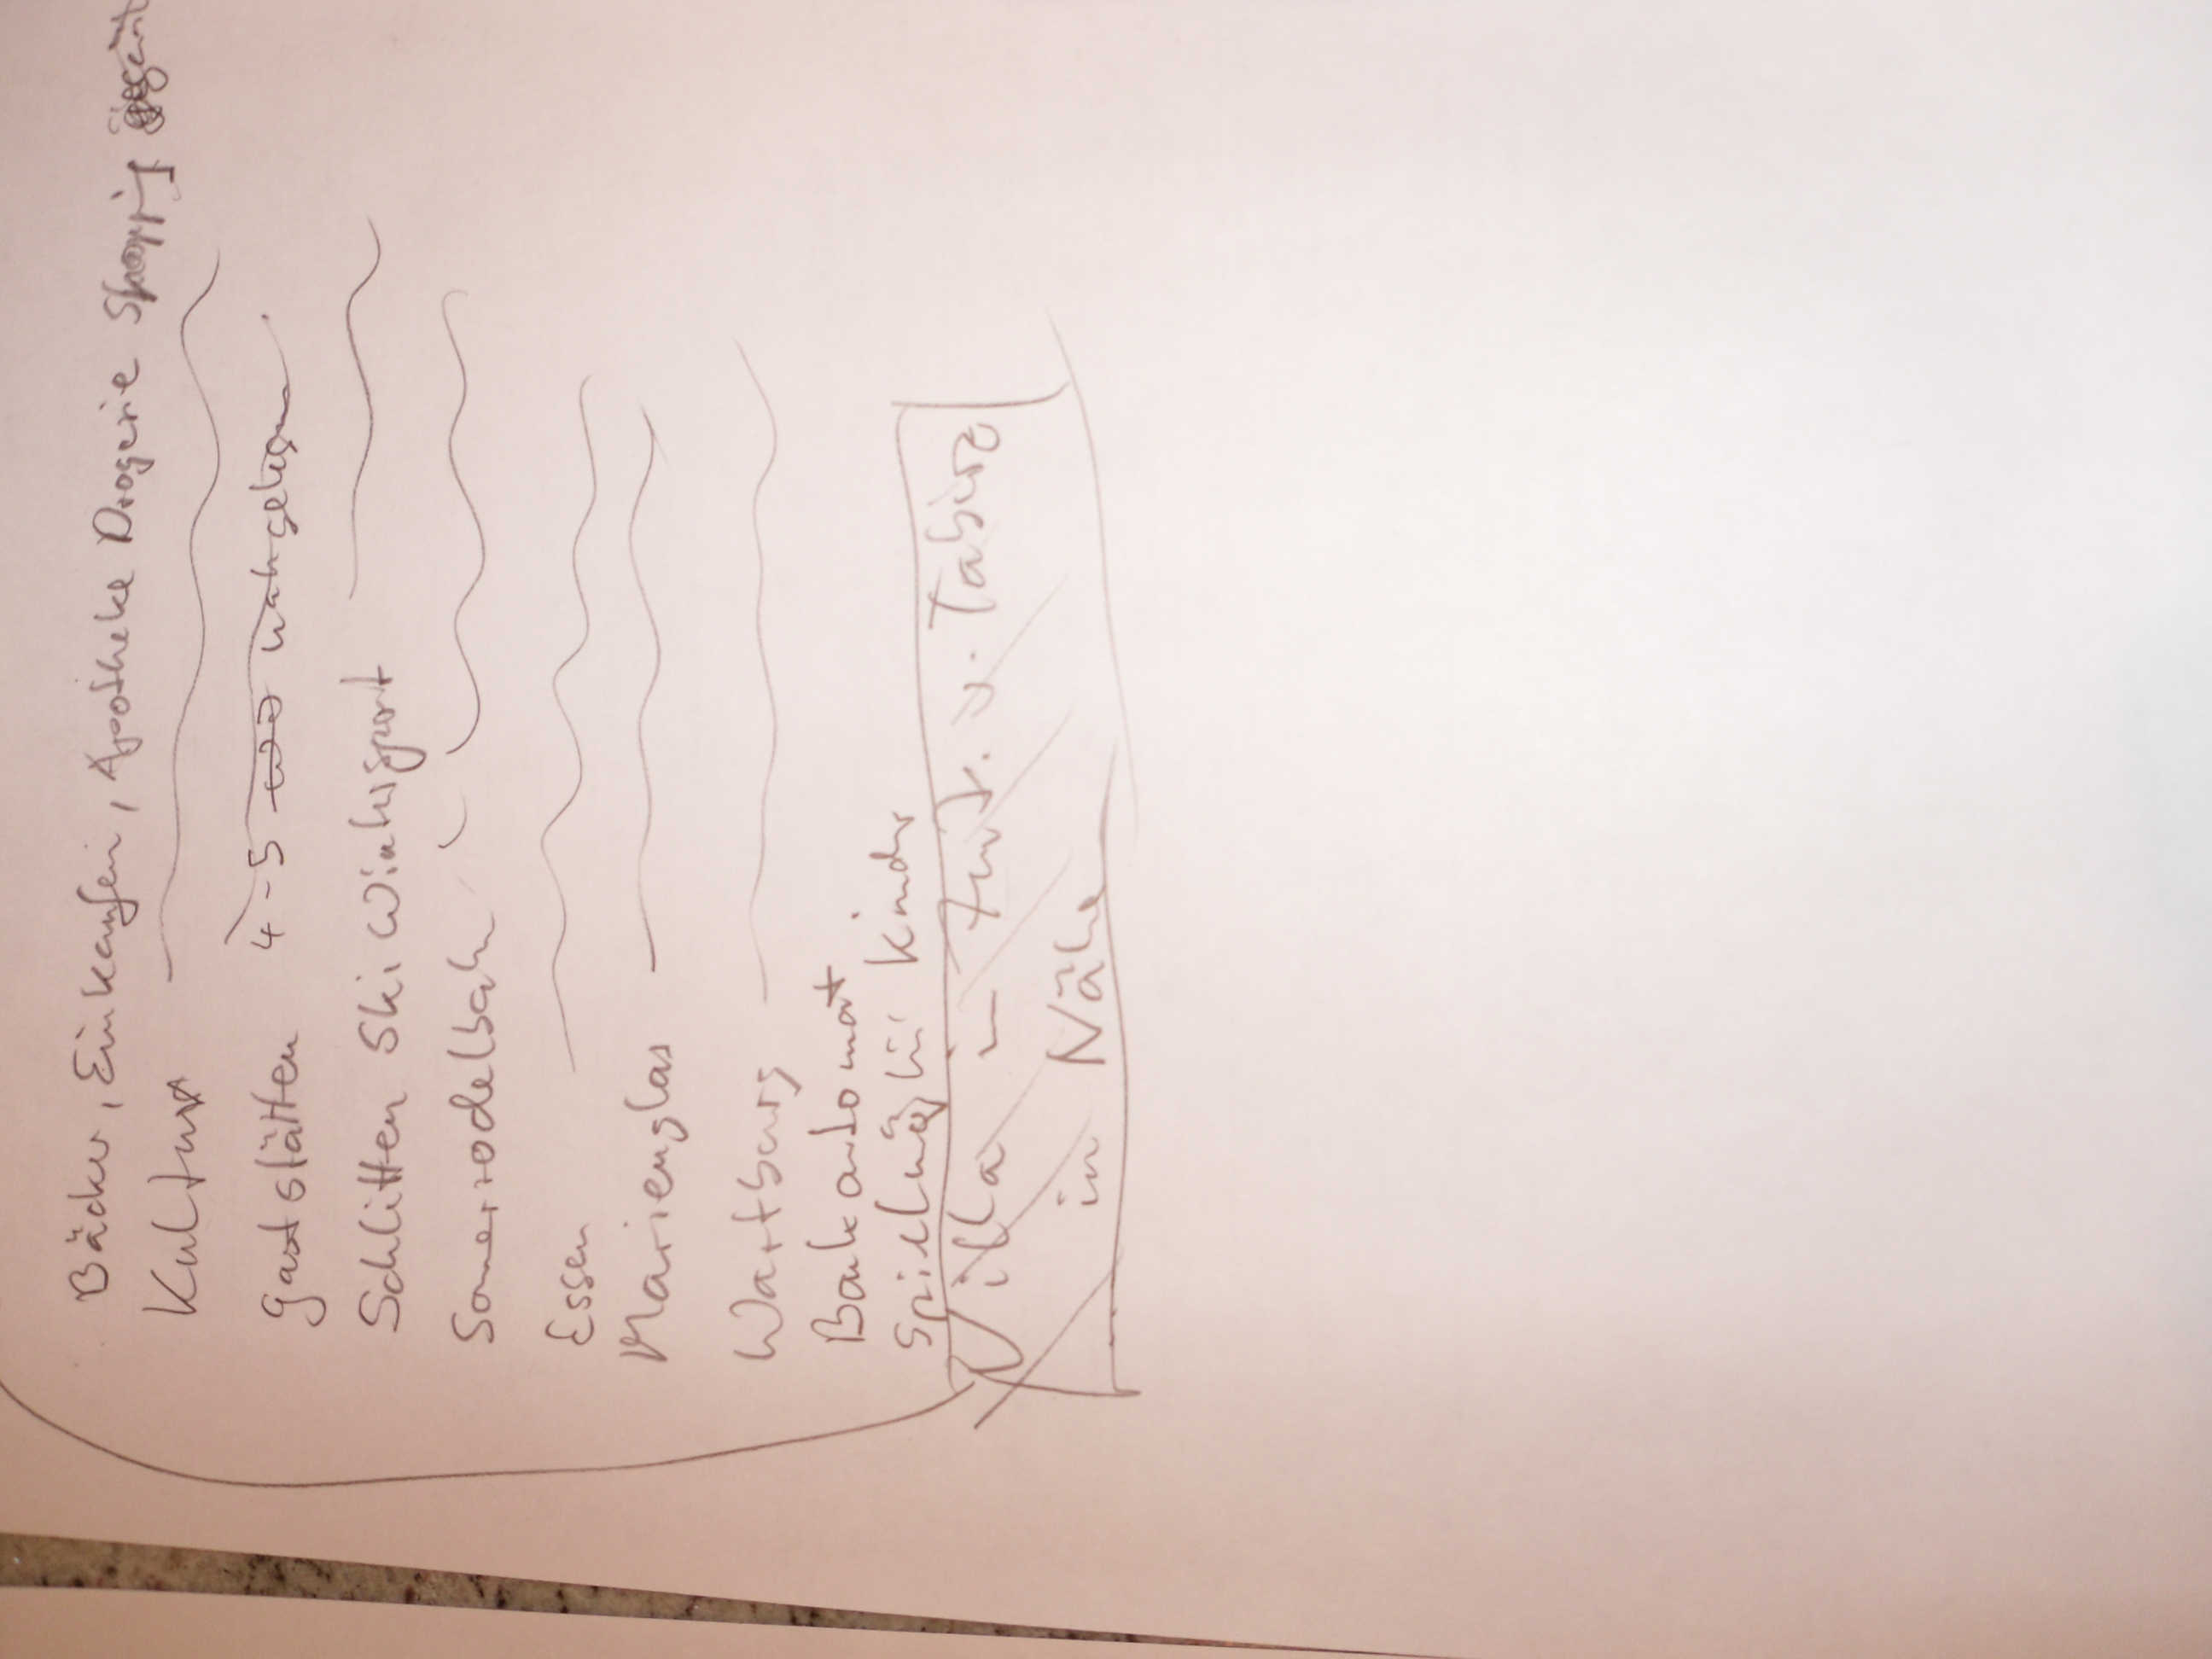 Bäcker, Einkaufen, Apotheke Drogerie Shopping
Kultur
Gaststätten 4-5 nahegelegene
Schlitten Ski Wintersport
Sommerrodelbahn
Essen
Marienglas
Wartburg
Bankautomat
Kinder
Villa in Tabarz
in Nähe